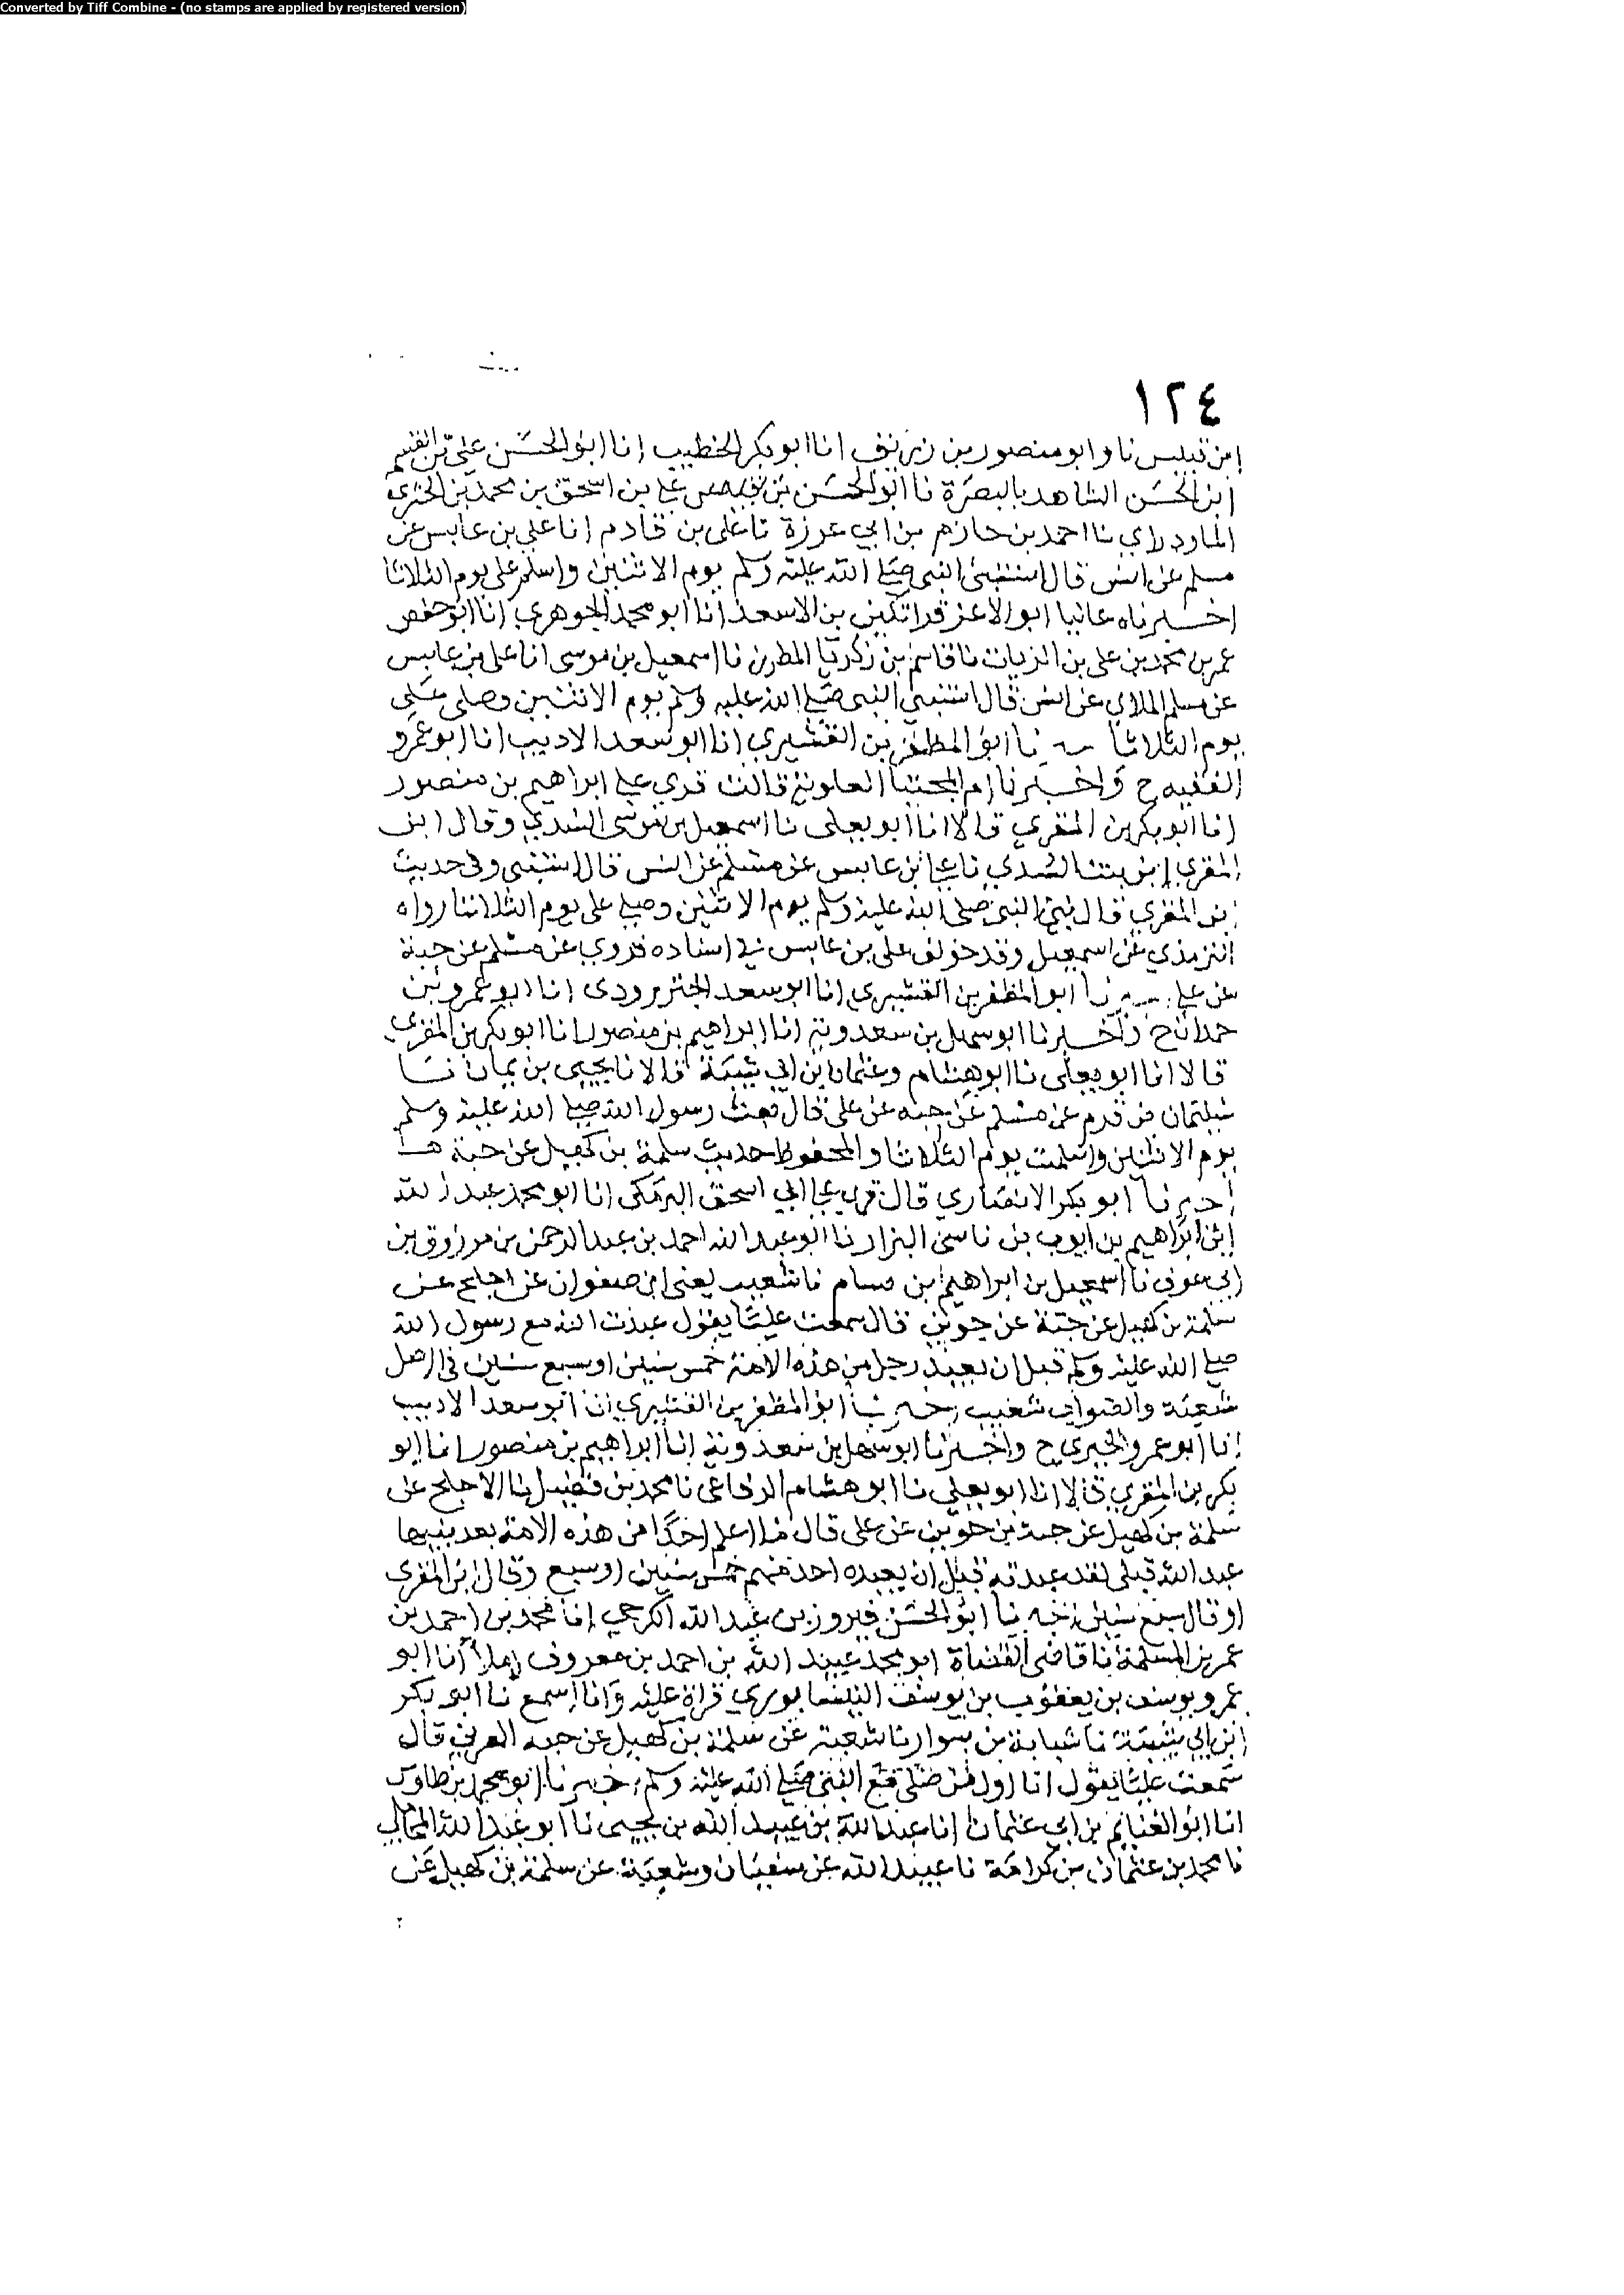 Converted by Tiff Combine - (no stamps are applied by registered version)
١٢٤
ابن قبيس نا وابو منصور بن زريق انا ابو بكر الخطيب انا ابو الحسن علي بن القسم
ابن الحسن الشاهد بالبصرة نا ابو الحسن علي بن اسحق بن محمد بن البختري
المادراي نا احمد بن حازم بن ابي غرزة نا علي بن قادم انا علي بن عابس عن
مسلم عن انس قال استنبئ النبي صلى الله عليه وسلم يوم الاثنين واسلم علي يوم الثلاثا
اخبرناه عاليا ابو الاعز قراتكين بن الاسعد انا ابو محمد الجوهري انا ابو حفص
عمر بن محمد بن علي بن الزيات نا قاسم بن زكريا المطرز نا اسمعيل بن موسى انا علي بن عابس
عن مسلم الملاي عن انس قال استنبئ النبي صلى الله عليه وسلم يوم الاثنين وصلى علي
يوم الثلاثا نا ابو المظفر بن القشيري انا ابو سعد الاديب انا ابو عمرو
الفقيه ح واخبرنا ام المجتبا العلوية قالت قرى على ابراهيم بن منصور
انا ابو بكر بن المقري قالا انا ابو يعلى نا اسمعيل بن موسى السدي وقال ابن
المقري ابن بنت السدي نا علي بن عابس عن مسلم عن انس قال استنبئ وفي حديث
ابن المقري قال نبئ النبي صلى الله عليه وسلم يوم الاثنين وصلى علي يوم الثلاثا رواه
الترمذي عن اسمعيل وقد خولف علي بن عابس في اسناده فروي عن مسلم عن حبة
عن علي نا ابو المظفر بن القشيري انا ابو سعد الجنزرودي انا ابو عمرو بن
حمدان ح واخبرنا ابو سهل بن سعدوية انا ابراهيم بن منصور انا ابو بكر بن المقري
قالا انا ابو يعلى نا ابو هشام وعثمان بن ابي شيبة قالا نا يحيى بن يمان نا
سليمان بن قرم عن مسلم عن حبه عن علي قال بعث رسول الله صلى الله عليه وسلم
يوم الاثنين واسلمت يوم الثلاثا والمحفوظ حديث سلمة بن كهيل عن حبة
اخبرنا ابو بكر الانصاري قال قرى على ابي اسحق البرمكي انا ابو محمد عبد الله
ابن ابراهيم بن ايوب بن ماسى البزار نا ابو عبد الله احمد بن عبد الرحمن بن مرزوق بن
ابي عوف نا اسمعيل بن ابراهيم بن بسام نا شعيب يعني ابن صفوان عن اجلح عن
سلمة بن كهيل عن حبة عن جوين قال سمعت عليا يقول عبدت الله مع رسول الله
صلى الله عليه وسلم قبل ان يعبد رجل من هذه الامة خمس سنين او سبع سنين في الاصل
شعبة والصواب شعيب اخبرنا ابو المظفر بن القشيري انا ابو سعد الاديب
انا ابو عمرو الحيري ح واخبرنا ابو سهل بن سعدوية انا ابراهيم بن منصور انا ابو
بكر بن المقري قالا انا ابو يعلى نا ابو هشام الرفاعي نا محمد بن فضيل نا الاجلح عن
سلمة بن كهيل عن حبة بن جوين عن علي قال ما اعلم احدا من هذه الامة بعد نبيها
عبد الله قبلي لقد عبدته قبل ان يعبده احد منهم خمس سنين او سبع وقال ابن المقري
او قال سبع سنين اخبرنا ابو الحسن فيروز بن عبد الله الكرجي انا محمد بن احمد بن
عمر بن المسلمة انا قاضي القضاة ابو محمد عبيد الله بن احمد بن معروف املأ انا ابو
عمرو يوسف بن يعقوب بن يوسف النيسابوري قراة عليه وانا اسمع نا ابو بكر
ابن ابي شيبة نا شبابة بن سوار نا شعبة عن سلمة بن كهيل عن حبه العرني قال
سمعت عليا يقول انا اول من صلى مع النبي صلى الله عليه وسلم اخبرنا ابو محمد بن طاوس
انا ابو الغنايم بن ابي عثمان انا عبد الله بن عبيد الله بن يحيى نا ابو عبد الله المحاملي
نا محمد بن عثمان بن كرامة نا عبيد الله عن سفيان وشعبة عن سلمة بن كهيل عن